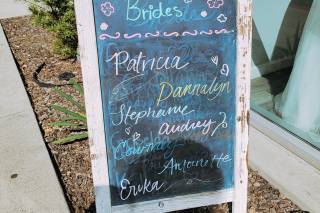 Brides
Patricia
Dannalyn
Stephanie
Audrey
Courtney
Antoinette
Erika